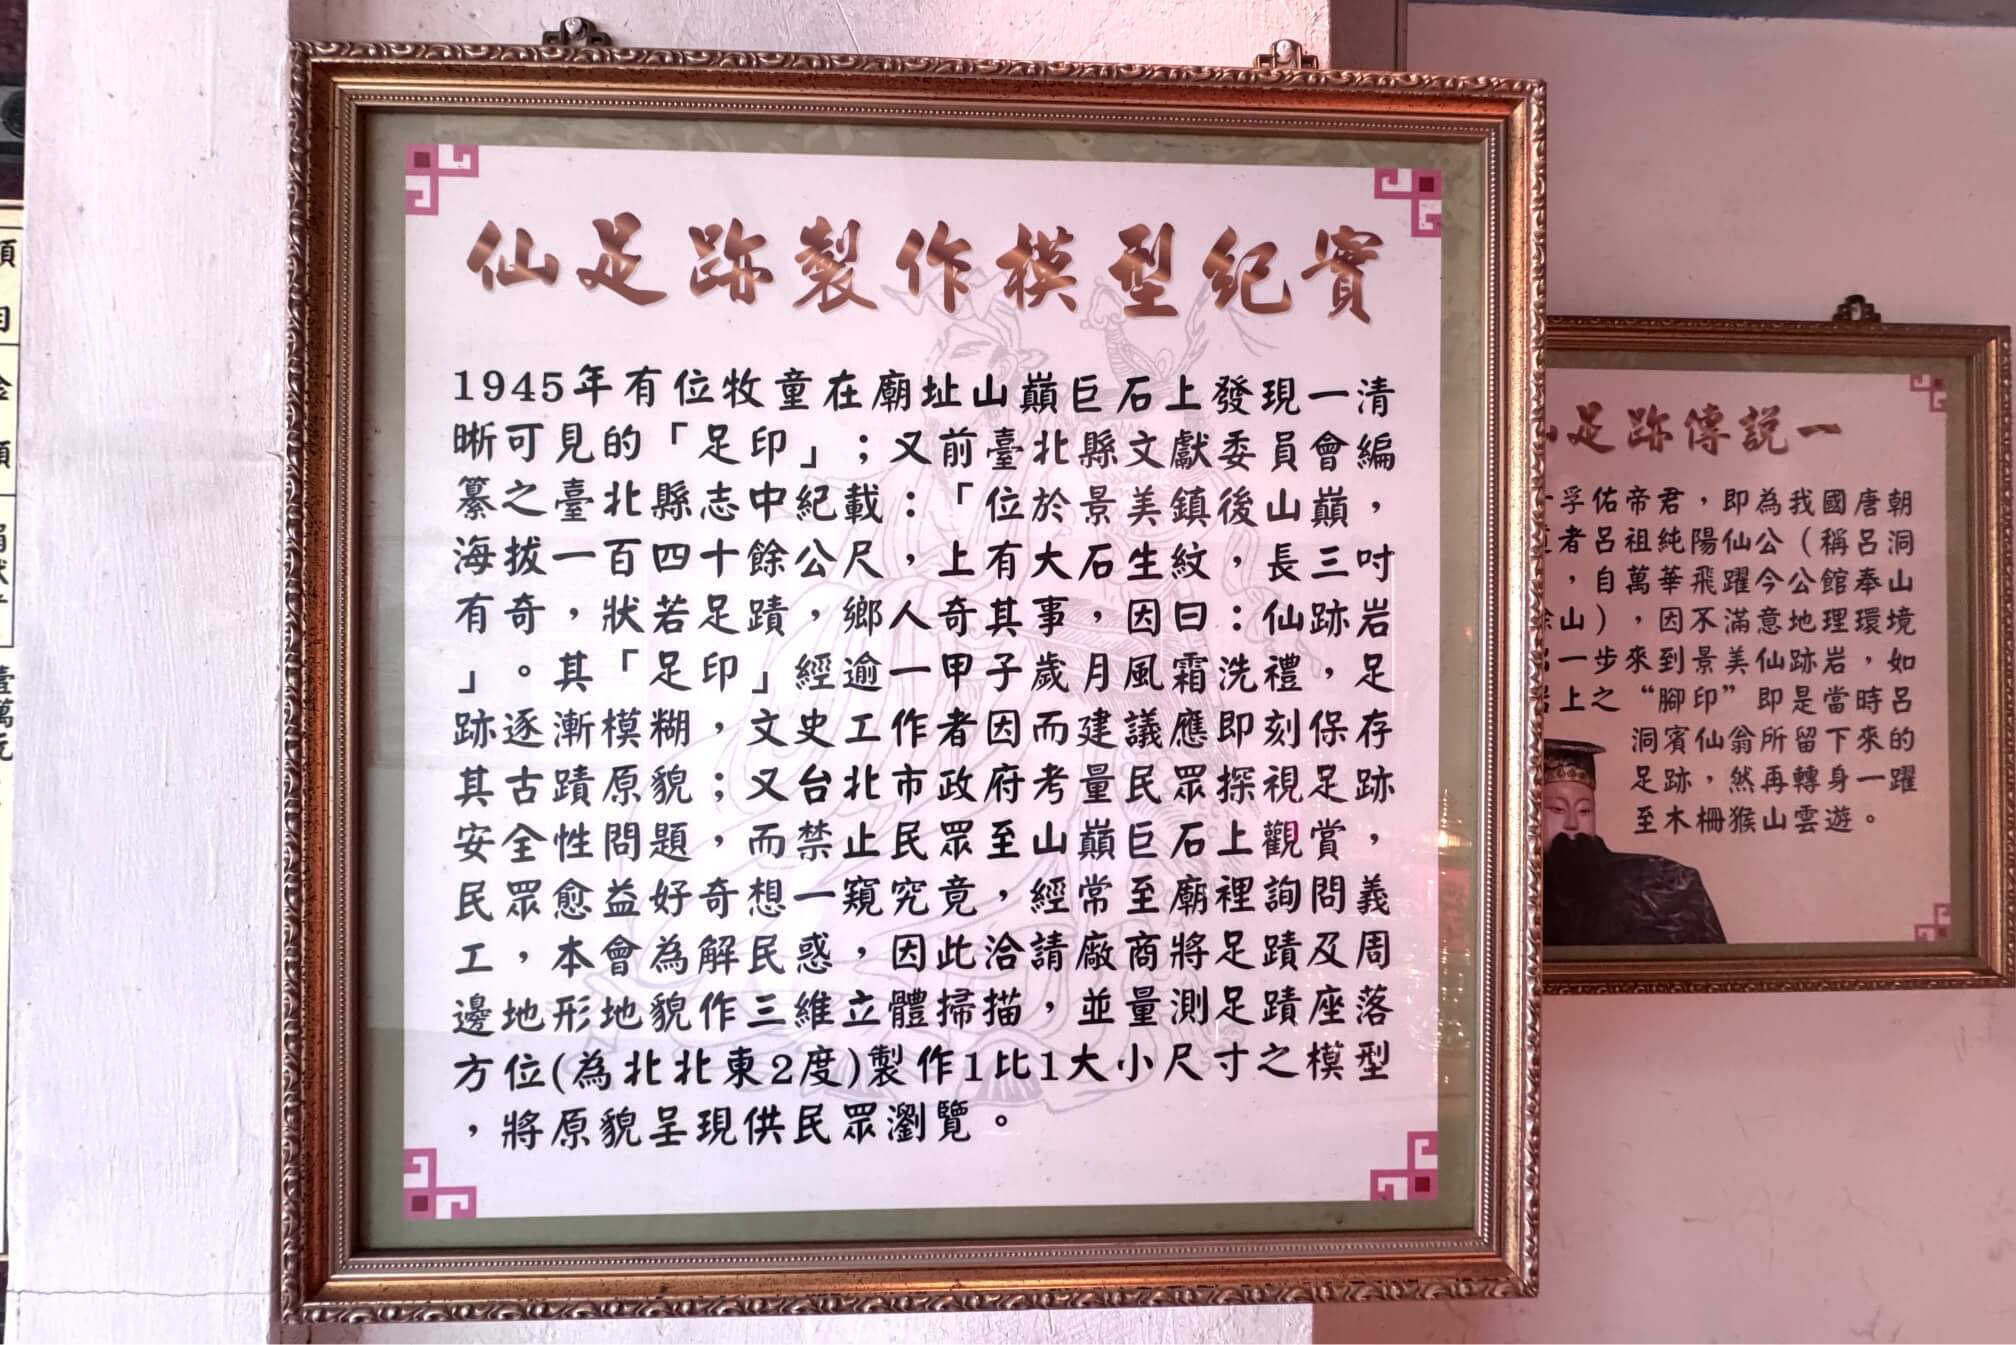 仙足跡製作模型紀實
1945年有位牧童在廟址山巔巨石上發現一清
晰可見的「足印」；又前臺北縣文獻委員會編
纂之臺北縣志中紀載：「位於景美鎮後山巔，
海拔一百四十餘公尺，上有大石生紋，長三吋
有奇，狀若足蹟，鄉人奇其事，因曰：仙跡岩
」。其「足印」經逾一甲子歲月風霜洗禮，足
跡逐漸模糊，文史工作者因而建議應即刻保存
其古蹟原貌；又台北市政府考量民眾探視足跡
安全性問題，而禁止民眾至山巔巨石上觀賞，
民眾愈益好奇想一窺究竟，經常至廟裡詢問義
工，本會為解民惑，因此洽請廠商將足蹟及周
邊地形地貌作三維立體掃描，並量測足蹟座落
方位(為北北東2度)製作1比1大小尺寸之模型
，將原貌呈現供民眾瀏覽。
足跡傳說一
孚佑帝君，即為我國唐朝
者呂祖純陽仙公（稱呂洞
，自萬華飛躍今公館奉山
山），因不滿意地理環境
一步來到景美仙跡岩，如
上之“腳印”即是當時呂
洞賓仙翁所留下來的
足跡，然再轉身一躍
至木柵猴山雲遊。
金
額
萬